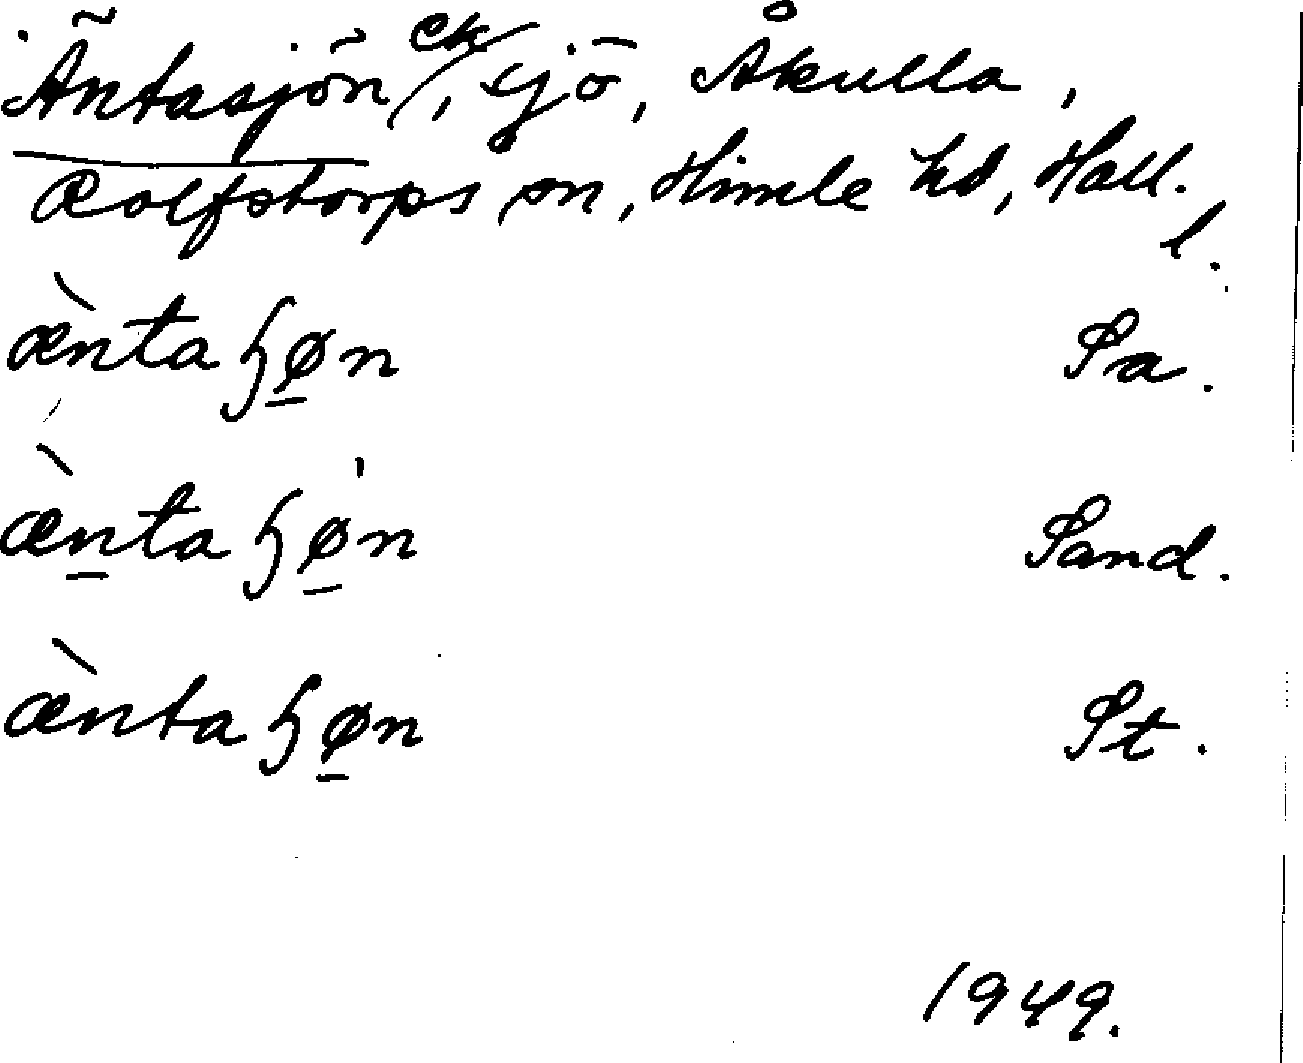 Äntasjön ek, sjö, Åkulla,
Rolfstorps sn, Himle hd, Hall.
l.
æ̀ntaɧø̱n Sa.
æ̀ṉtaɧø̱̍n Sand.
æ̀ntaɧø̱n St.
1949.